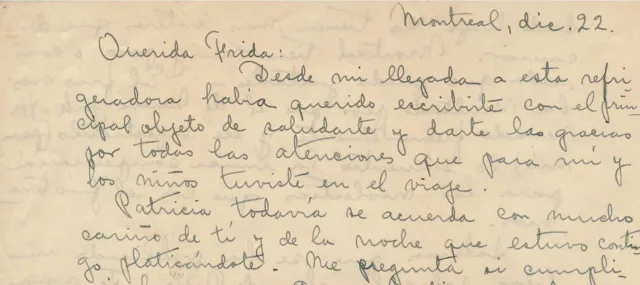 Montreal, dic. 22.
Querida Frida:
Desde mi llegada a esta refri
geradora había querido escribirte con el prin
cipal objeto de saludarte y darte las gracias
por todas las atenciones que para mí y
los niños tuviste en el viaje.
Patricia todavía se acuerda con mucho
cariño de tí y de la noche que estuvo conti
go platicándote. Me pregunta si cumpli-